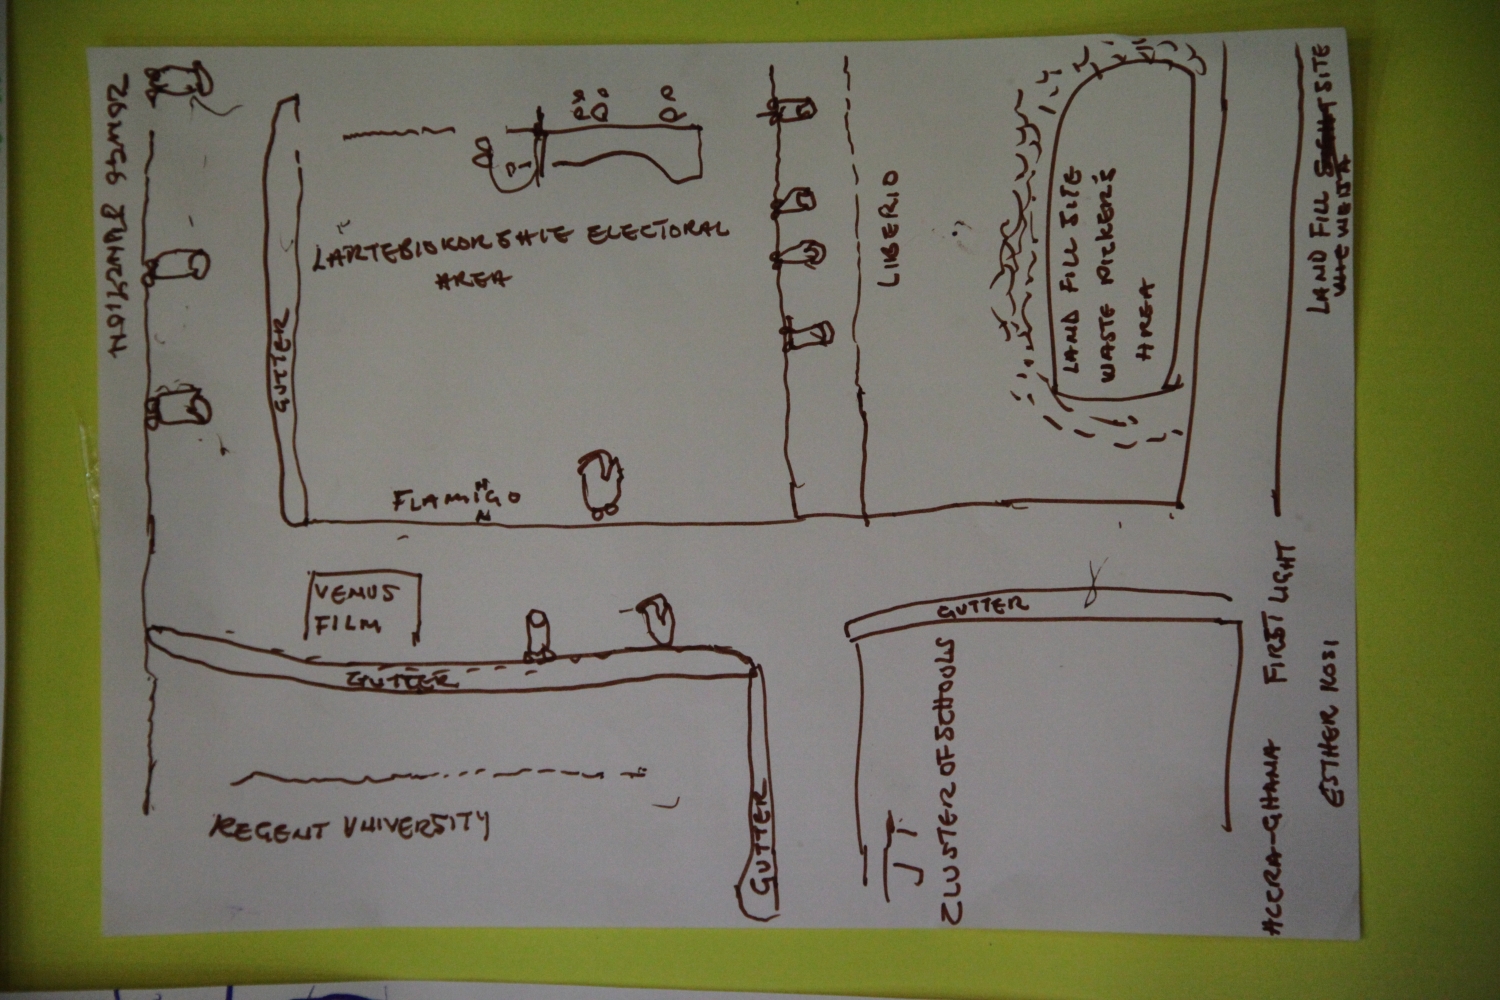 ZOWG6 JUNCTION
GUTTER
LARTEBIOKORSHIE ELECTORAL
AREA
FLAMIGO
N
N
LIBERIO
LAND FILL SITE
WASTE PICKER'S
AREA
LAND FILL SITE
WEIJA
VENUS
FILM
GUTTER
REGENT UNIVERSITY
GUTTER
GUTTER
JT
CLUSTER OF SCHOOLS
ACCRA-GHANA FIRST LIGHT
ESTHER KOSI